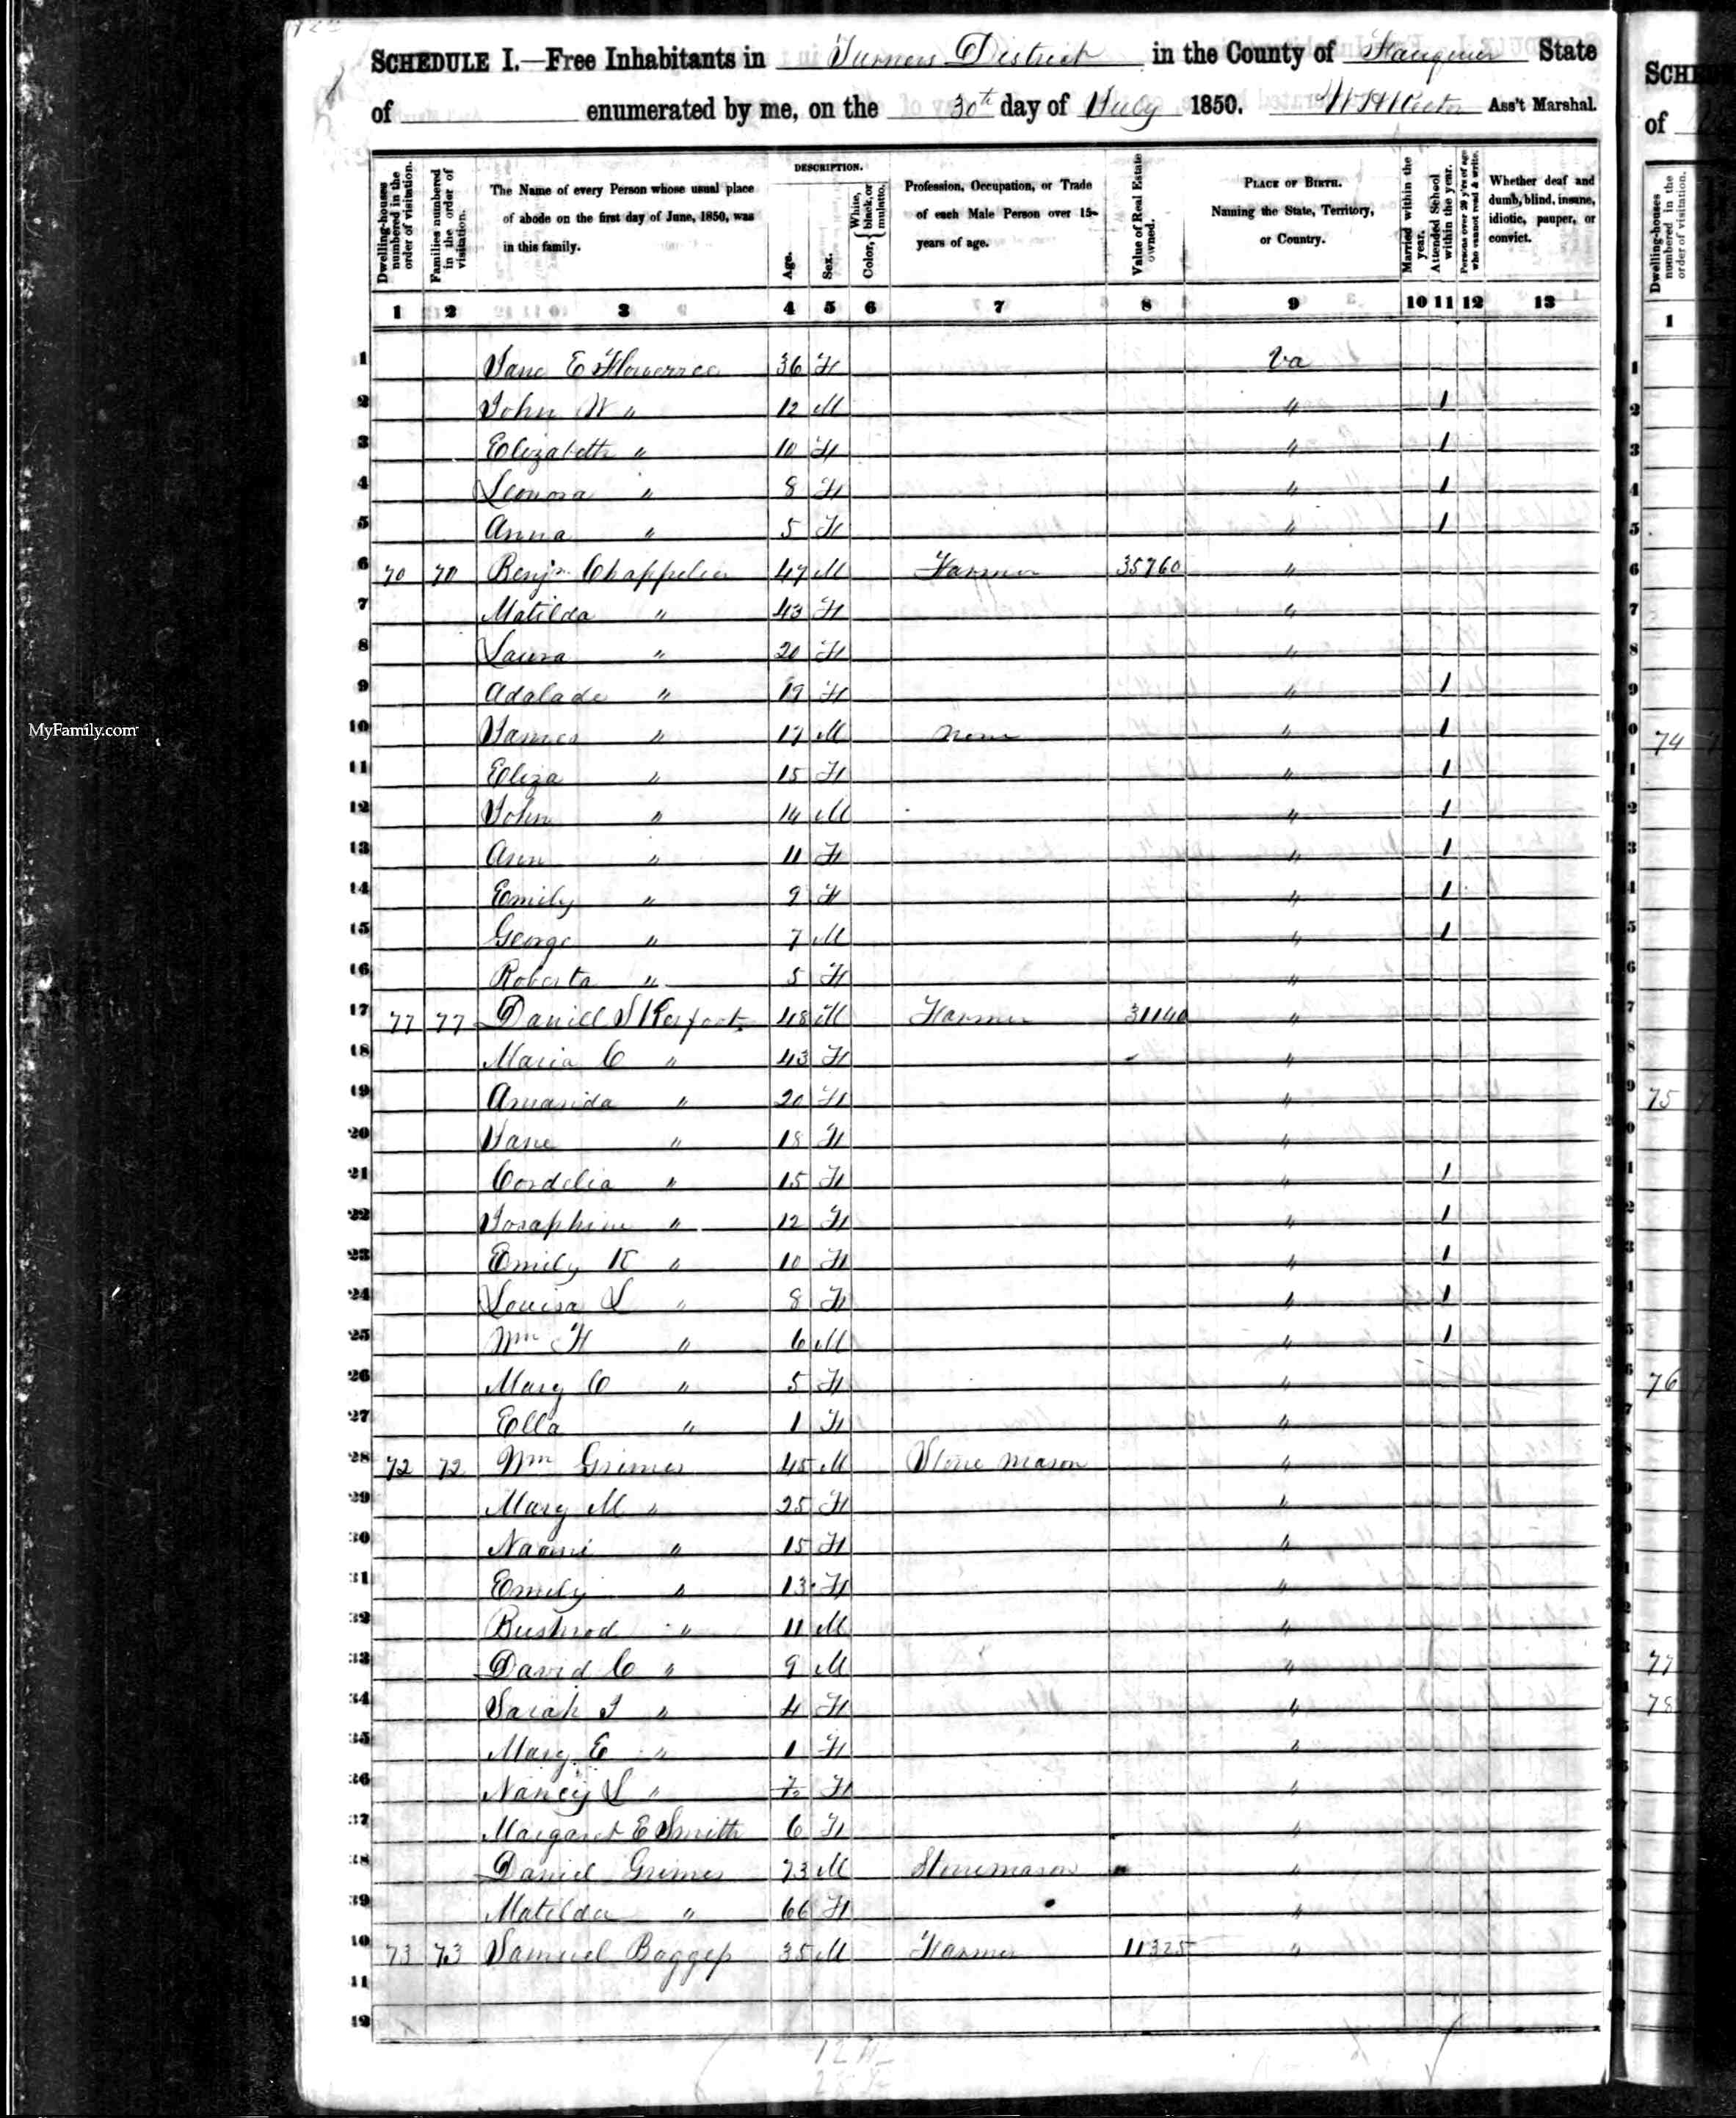 SCHEDULE I.—Free Inhabitants in Turners District in the County of Fauquier State
of enumerated by me, on the 30th day of July 1850. Ass't Marshal.
Dwelling-houses numbered in the order of visitation.
Families numbered in the order of visitation.
The Name of every Person whose usual place of abode on the first day of June, 1850, was in this family.
DESCRIPTION.
Age.
Sex.
Color, { White, black, or mulatto.
Profession, Occupation, or Trade of each Male Person over 15 years of age.
Value of Real Estate owned.
PLACE OF BIRTH. Naming the State, Territory, or Country.
Married within the year.
Attended School within the year.
Persons over 20 y'rs of age who cannot read & write.
Whether deaf and dumb, blind, insane, idiotic, pauper, or convict.
1 2 3 4 5 6 7 8 9 10 11 12 13
1 Jane E Flowerree 36 F Va
2 John W " 12 M " 1
3 Elizabeth " 10 F " 1
4 Leonora " 8 F " 1
5 Anna " 5 F " 1
6 70 70 Benjn Chappelier 47 M Farmer 35760 "
7 Matilda " 43 F "
8 Laura " 20 F "
9 Adalade " 19 F " 1
10 James " 17 M None " 1
11 Eliza " 15 F " 1
12 John " 14 M " 1
13 Ann " 11 F " 1
14 Emily " 9 F " 1
15 George " 7 M " 1
16 Roberta " 5 F "
17 77 77 Daniel S Kerfoot 48 M Farmer 31140 "
18 Maria C " 43 F "
19 Amanda " 20 F "
20 Jane " 18 F "
21 Cordelia " 15 F " 1
22 Josaphine " 12 F " 1
23 Emily K " 10 F " 1
24 Louisa L " 8 F " 1
25 Wm F " 6 M " 1
26 Mary C " 5 F "
27 Ella " 1 F "
28 72 72 Wm Grimes 45 M Stone Mason "
29 Mary M " 25 F "
30 Naomi " 15 F "
31 Emily " 13 F "
32 Bushrod " 11 M "
33 David C " 9 M "
34 Sarah J " 4 F "
35 Mary E " 1 F "
36 Nancy L " F "
37 Margaret E Smith 6 F "
38 Daniel Grimes 73 M Stonemason "
39 Matilda " 66 F "
40 73 73 Samuel Baggep 35 M Farmer 11325 "
41
42
MyFamily.com
SCHE
of
Dwelling-houses numbered in the order of visitation.
1
74
75
76
77
78